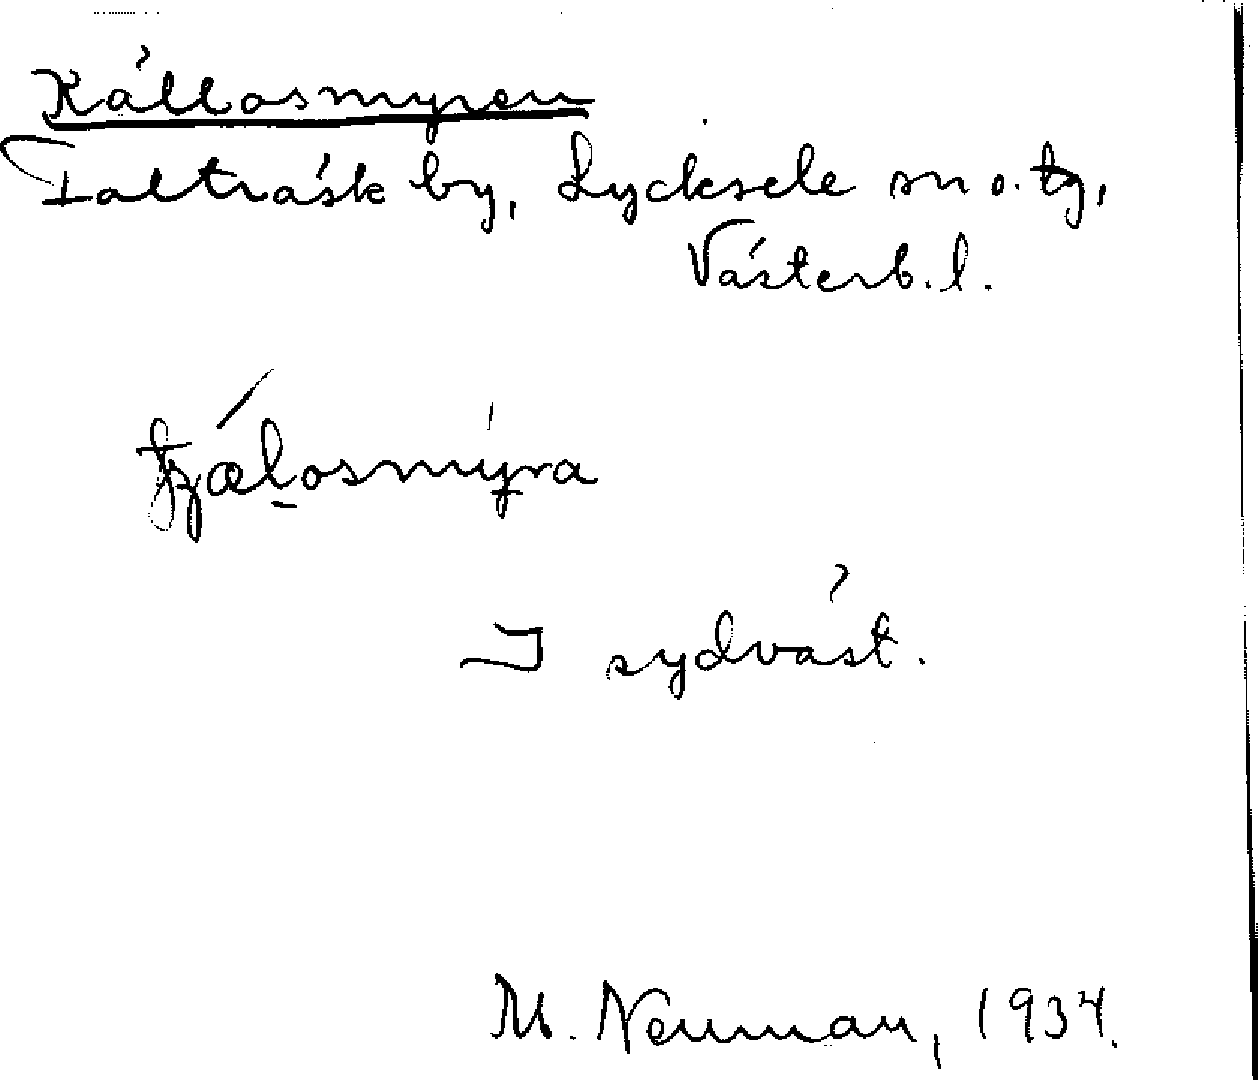 Källosmyren
Talträsk by, Lycksele sn o. tg,
Västerb. l.
sydväst.
M. Neuman, 1934.